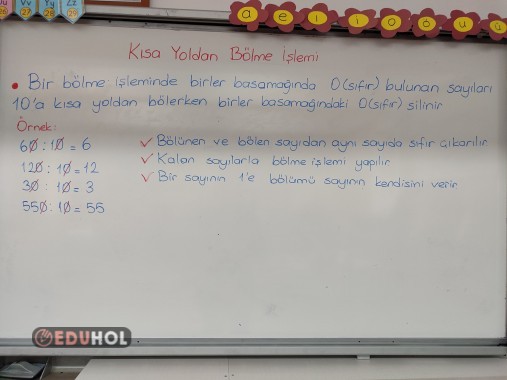 Uu Vv Yy Zz
26 27 28 29
a e ı i o ö u
Kısa Yoldan Bölme İşlemi
• Bir bölme işleminde birler basamağında 0(sıfır) bulunan sayıları
10'a kısa yoldan bölerken birler basamağındaki 0(sıfır) silinir
Örnek:
60 : 10 = 6
120 : 10 = 12
30 : 10 = 3
550 : 10 = 55
✓ Bölünen ve bölen sayıdan aynı sayıda sıfır çıkarılır
✓ Kalan sayılarla bölme işlemi yapılır
✓ Bir sayının 1'e bölümü sayının kendisini verir
EDUHOL